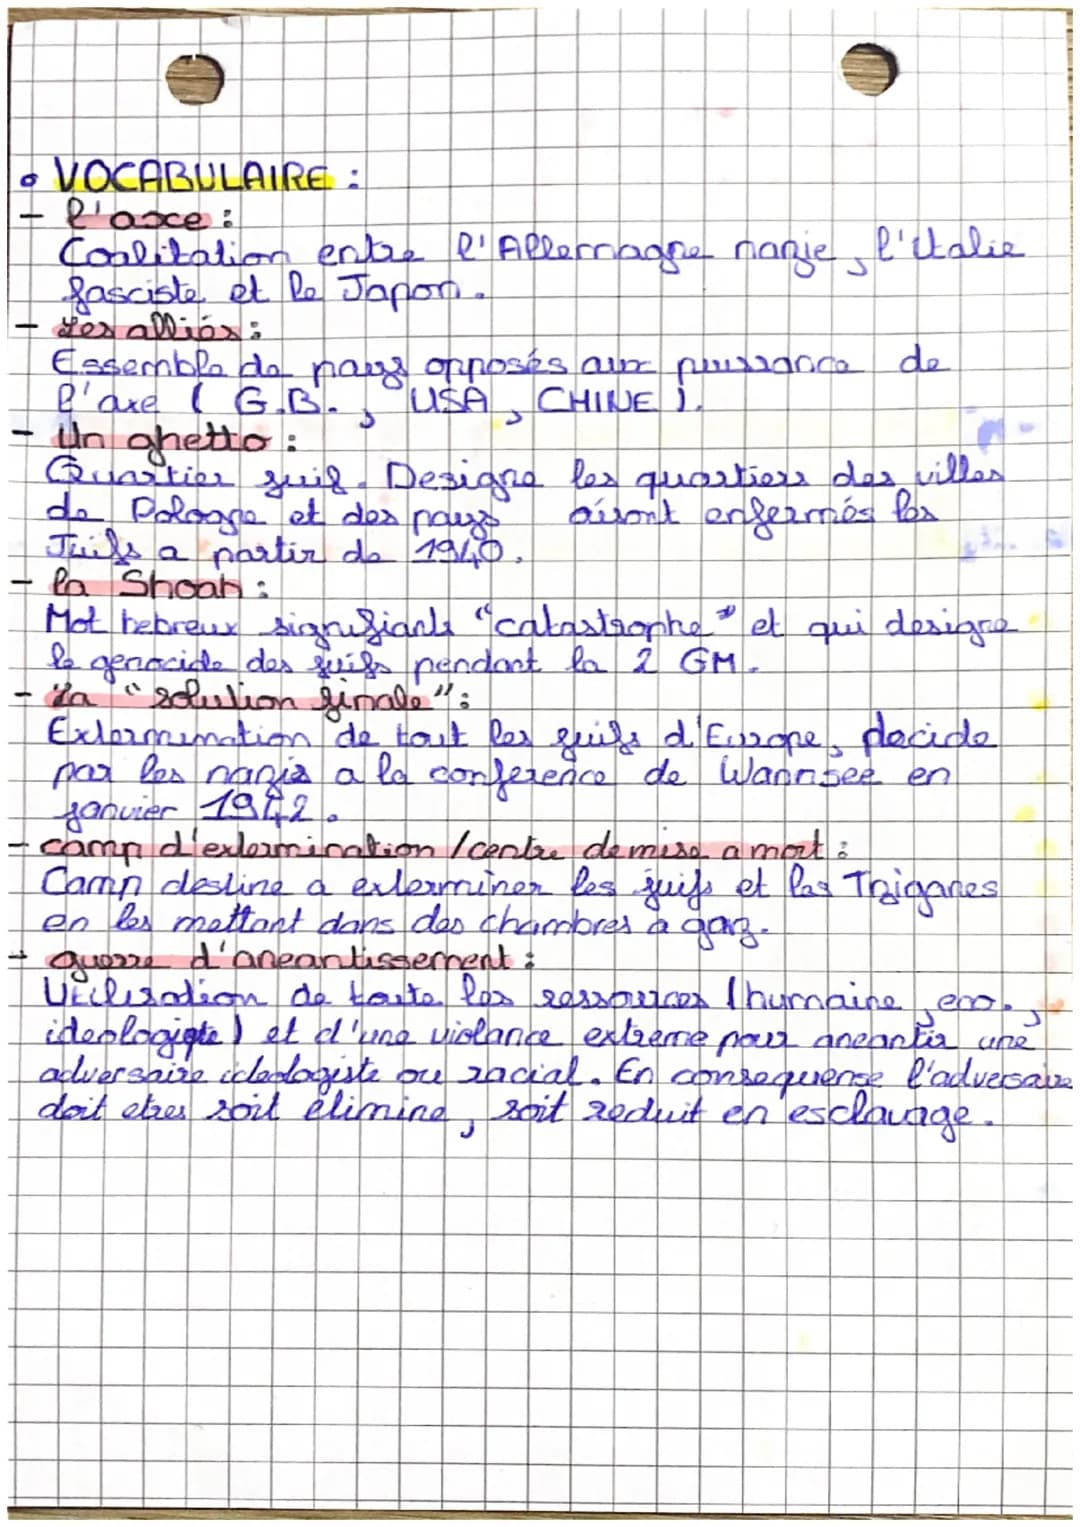 • VOCABULAIRE :
- l'axe :
Coalitation entre l'Allemagne nazie, l'Italie
fasciste et le Japon.
- Les alliés :
Essemble de pays opposés aux puissance de
l'axe ( G.B., USA, CHINE ).
- Un ghetto :
Quartier juif. Designe les quartiers des villes
de Pologne et des pays enfermés les
Juifs a partir de 1940.
- la Shoah :
Mot hebreux signifiant "catastrophe" et qui designe
le genocide des juifs pendant la 2 GM.
- La "solution finale" :
Extermination de tout les juifs d'Europe, decide
par les nazis a la conference de Wannsee en
janvier 1942.
- camp d'extermination / centre de mise a mort :
Camp destine a exterminer les juifs et les Tziganes
en les mettant dans des chambres à gaz.
- guerre d'aneantissement :
Utilisation de toute les ressources (humaine, eco.,
ideologiqte) et d'une violance extreme pour aneantir une
adversaire ideologiste ou racial. En consequense l'adversaire
doit etres soit élimine, soit reduit en esclavage.